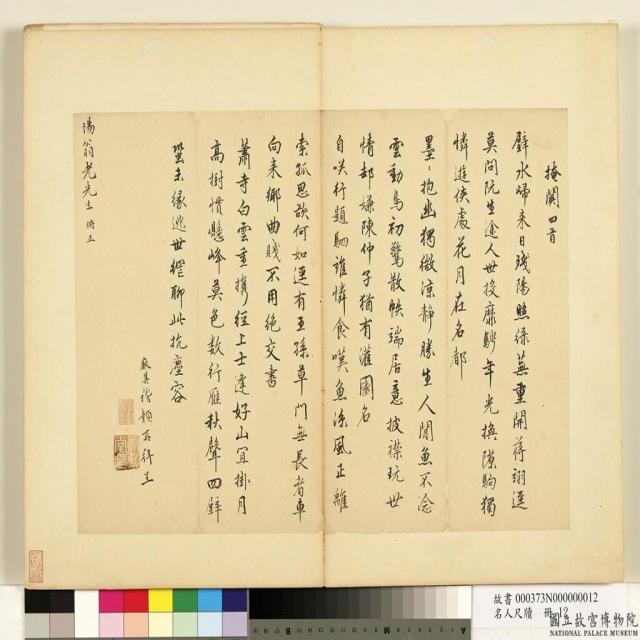 掩關四首
璧水歸來日殘陽照綠蕪重開蔣翊逕
莫問阮生途人世投靡騁年光換隙駒獨
憐遊俠處花月在名都
墨墨抱幽獨微涼靜勝生人閒魚不淰
雲動鳥初驚散帙端居意披襟玩世
情却嫌陳仲子猶有灌園名
自咲行題駟誰憐食嘆魚涼風正離
索孤思欲何如逕有王孫草門無長者車
向來鄉曲賤不用絕交書
蕭寺白雲重攜經上士逢好山宜掛月
高樹慣懸峰莫色數行雁秋聲四壁
蛩未緣逃世網聊此抗塵容
厳其 頓首
湯翁老先生
故書 000373N000000012
名人尺牘 冊 12
國立故宮博物院
NATIONAL PALACE MUSEUM